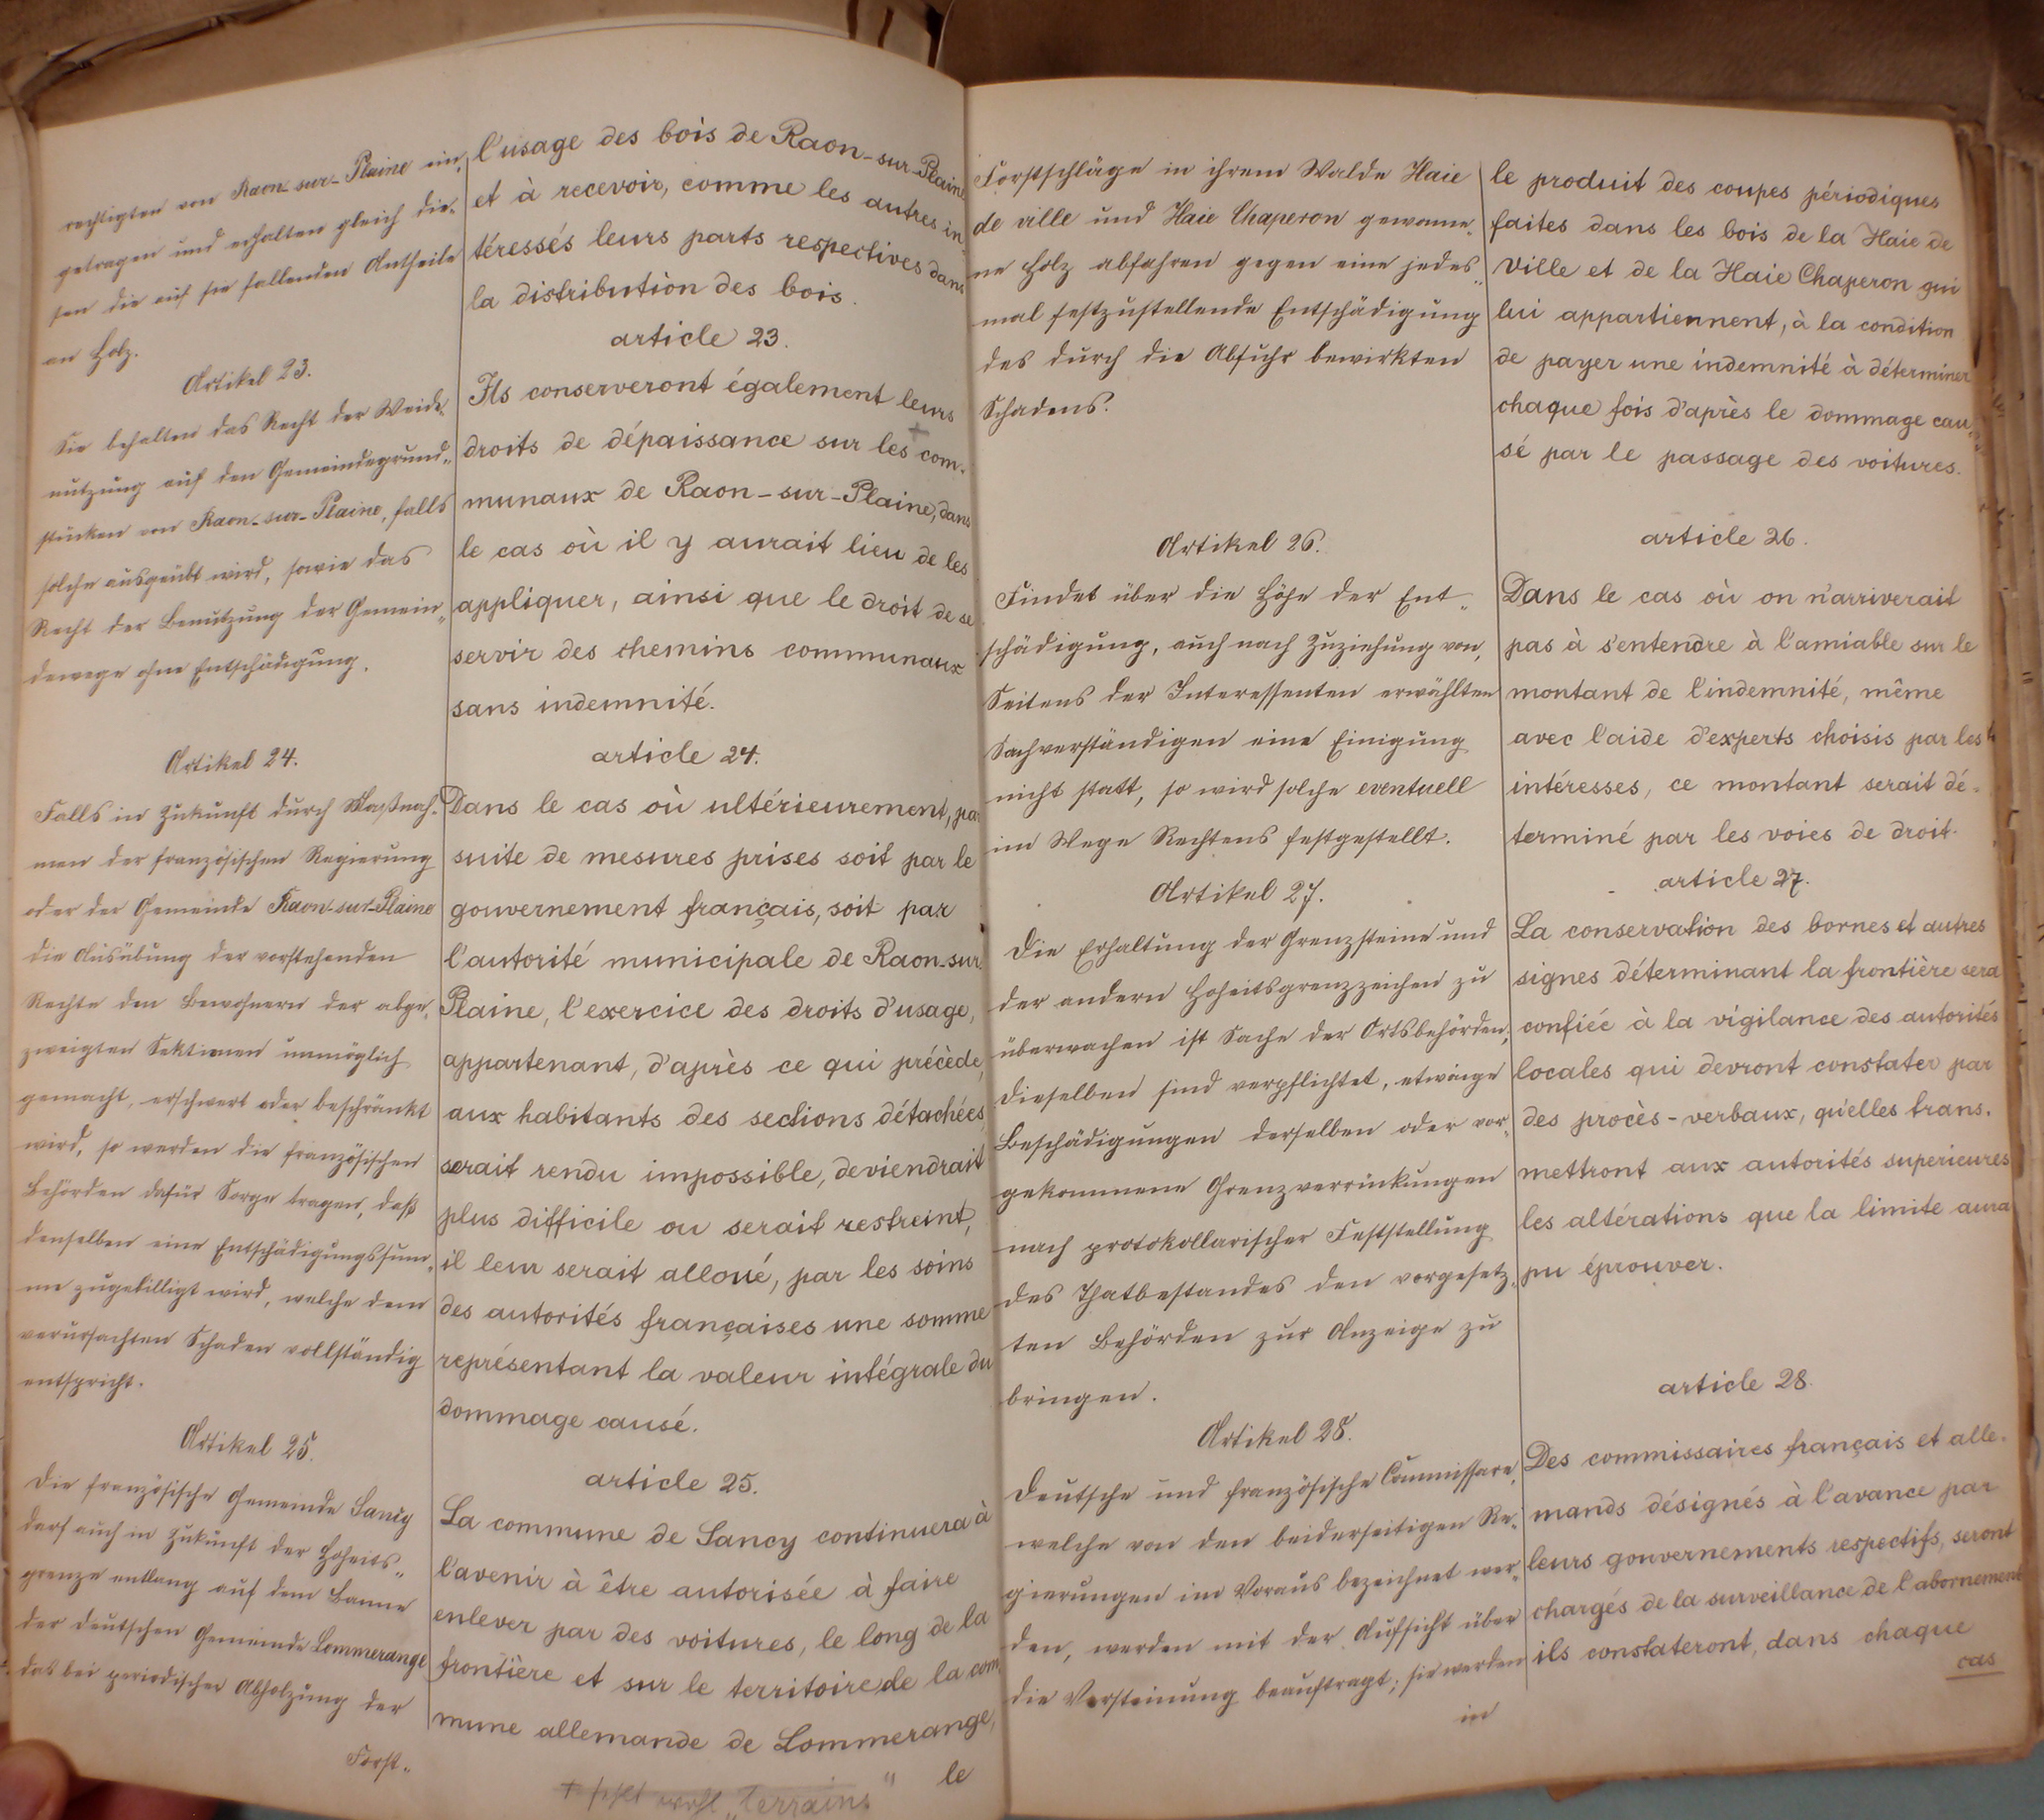 rechtigten von Raon-sur-Plaine ein-
getragen und erhalten gleich die-
sen die auf sie fallenden Antheile
an Holz.
Artikel 23.
Sie behalten das Recht der Weide-
nutzung auf den Gemeindegrund-
stücken von Raon-sur-Plaine, falls
solche ausgeübt wird, sowie das
Recht der Benutzung der Gemein-
dewege ohne Entschädigung.
Artikel 24.
Falls in Zukunft durch Maßnah-
men der französischen Regierung
oder der Gemeinde Raon-sur-Plaine
die Ausübung der vorstehenden
Rechte den Bewohnern der abge-
zweigten Sektionen unmöglich
gemacht, erschwert oder beschränkt
wird, so werden die französischen
Behörden dafür Sorge tragen, daß
denselben eine Entschädigungssum-
me zugebilligt wird, welche dem
verursachten Schaden vollständig
entspricht.
Artikel 25.
Die französische Gemeinde Sancy
darf auch in Zukunft der Hoheits-
grenze entlang auf dem Banne
der deutschen Gemeinde Lommerange
das bei periodischer Abholzung der
Forst-
l'usage des bois de Raon-sur-Plaine
et à recevoir, comme les autres in-
téressés leurs parts respectives dans
la distribution des bois.
article 23.
Ils conserveront également leurs
droits de dépaissance sur les + com-
munaux de Raon-sur-Plaine, dans
le cas où il y aurait lieu de les
appliquer, ainsi que le droit de se
servir des chemins communaux
sans indemnité.
article 24.
Dans le cas où ultérieurement, par
suite de mesures prises soit par le
gouvernement français, soit par
l'autorité municipale de Raon-sur-
Plaine, l'exercice des droits d'usage,
appartenant, d'après ce qui précède,
aux habitants des sections détachées,
serait rendu impossible, deviendrait
plus difficile ou serait restreint,
il leur serait alloué, par les soins
des autorités françaises une somme
représentant la valeur intégrale du
dommage causé.
article 25.
La commune de Sancy continuera à
l'avenir à être autorisée à faire
enlever par des voitures, le long de la
frontière et sur le territoire de la com-
mune allemande de Lommerange,
le
+ fehlt wohl „terrains"
Forstschläge in ihrem Walde Haie
de ville und Haie Chaperon gewonne-
ne Holz abfahren gegen eine jedes-
mal festzustellende Entschädigung
des durch die Abfuhr bewirkten
Schadens.
Artikel 26.
Findet über die Höhe der Ent-
schädigung, auch nach Zuziehung von,
Seitens der Interessenten erwählten
Sachverständigen eine Einigung
nicht statt, so wird solche eventuell
im Wege Rechtens festgestellt.
Artikel 27.
Die Erhaltung der Grenzsteine und
der andern Hoheitsgrenzzeichen zu
überwachen ist Sache der Ortsbehörden,
dieselben sind verpflichtet, etwaige
Beschädigungen derselben oder vor-
gekommene Grenzverrückungen
nach protokollarischer Feststellung
des Thatbestandes den vorgesetz-
ten Behörden zur Anzeige zu
bringen.
Artikel 28.
Deutsche und französische Commissare,
welche von den beiderseitigen Re-
gierungen im Voraus bezeichnet wer-
den, werden mit der Aufsicht über
die Versteinung beauftragt; sie werden
in
le produit des coupes périodiques
faites dans les bois de la Haie de
Ville et de la Haie Chaperon qui
lui appartiennent, à la condition
de payer une indemnité à déterminer
chaque fois d'après le dommage cau-
sé par le passage des voitures.
article 26.
Dans le cas où on n'arriverait
pas à s'entendre à l'amiable sur le
montant de l'indemnité, même
avec l'aide d'experts choisis par les
intéressés, ce montant serait dé-
terminé par les voies de droit.
article 27.
La conservation des bornes et autres
signes déterminant la frontière sera
confiée à la vigilance des autorités
locales qui devront constater par
des procès-verbaux, qu'elles trans-
mettront aux autorités superieures
les altérations que la limite aura
pu éprouver.
article 28.
Des commissaires français et alle-
mands désignés à l'avance par
leurs gouvernements respectifs, seront
chargés de la surveillance de l'abornement
ils constateront, dans chaque
cas